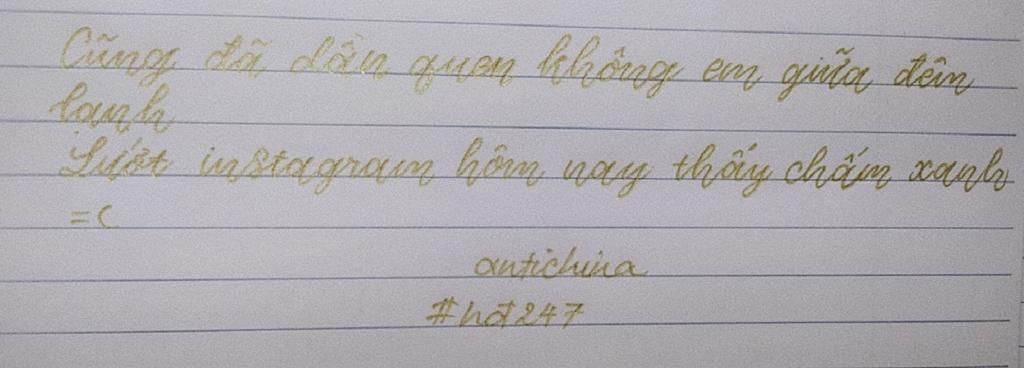 Cũng đã dần quen không em giữa đêm
lạnh
Lướt instagram hôm nay thấy chấm xanh
=(
antichina
#hđ247